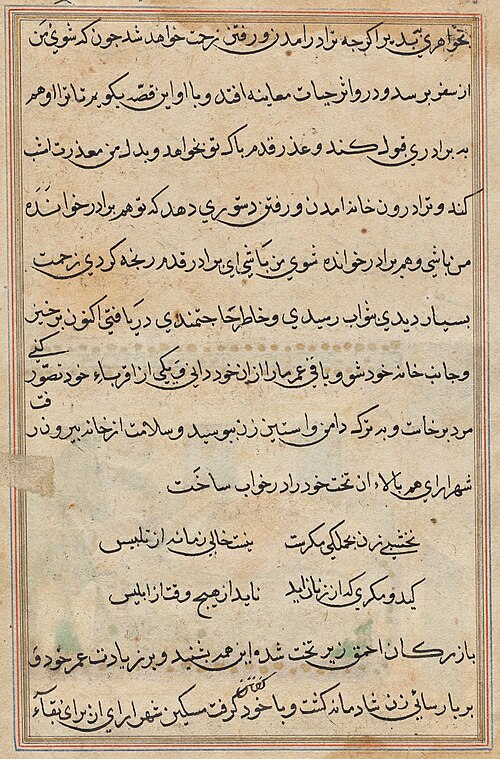 بخواهری بپذیر اکرچه ترا درامدن و رفتن زحمت خواهد شد چون که شوئ من
از سفر برسد و در و اثر حیات معاینه افتد و با او این قصه بکویم تا ترا او هم
به برادری قبول کند و عذر قدم پاک تو بخواهد و بدل من معذرت اثبات
کند و ترا درون خانه امدن و رفتن دستوری دهد که تو هم برادر خوانده
من باشی و هم برادر خوانده شوی من باشی ای برادر قدم رنجه کردی زحمت
بسیار دیدی بثواب رسیدی و خاطر حاجتمندی دریافتی اکنون برخیز
و جانب خانه خود شو و باقی عمر مارا ازان خود دانی و یکی از اقرباء خود تصور کنی
مرد برخاست و به تبرک دامن و استین زن ببوسید و سلامت از خانه بیرون رفت
شهرارای هم بالاء ان تخت خود را در خواب ساخت
نخشبی زن بحملکی مکرست هست خالی نماند از تلبیس
کید و مکری که از زنان زاید ناید از هیچ وقت از ابلیس
بازرکان احمق زیر تخت شده این همه بشنید و بر زیادت عمر خود و
بر پارسائی زن شادمانه کشت و با خود کفتن کرفت مسکین شهرارای از برای بقاء